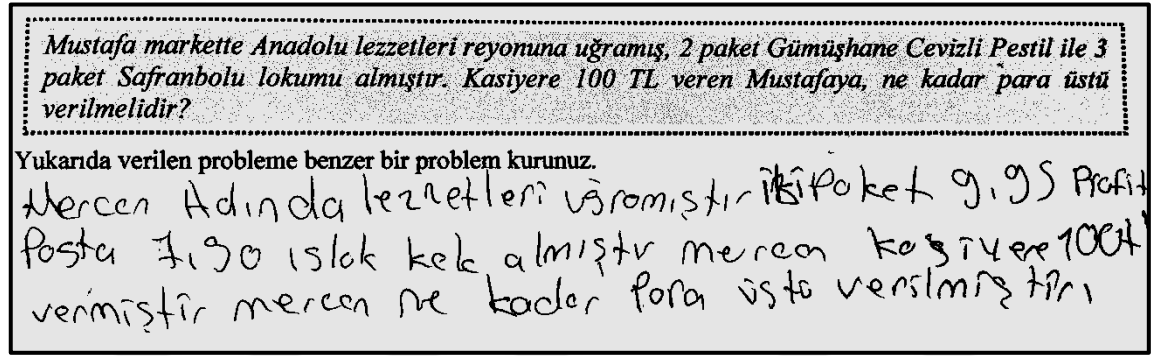 Mustafa markette Anadolu lezzetleri reyonuna uğramış, 2 paket Gümüşhane Cevizli Pestil ile 3
paket Safranbolu lokumu almıştır. Kasiyere 100 TL veren Mustafaya, ne kadar para üstü
verilmelidir?
Yukarıda verilen probleme benzer bir problem kurunuz.
Mercan Adında lezzetleri uğramıştır iki Paket 9,95 Profit
Pasta 7,90 ıslak kek almıştır mercan kasiyere 100
vermiştir mercan ne kadar Para üstü verilmiştir